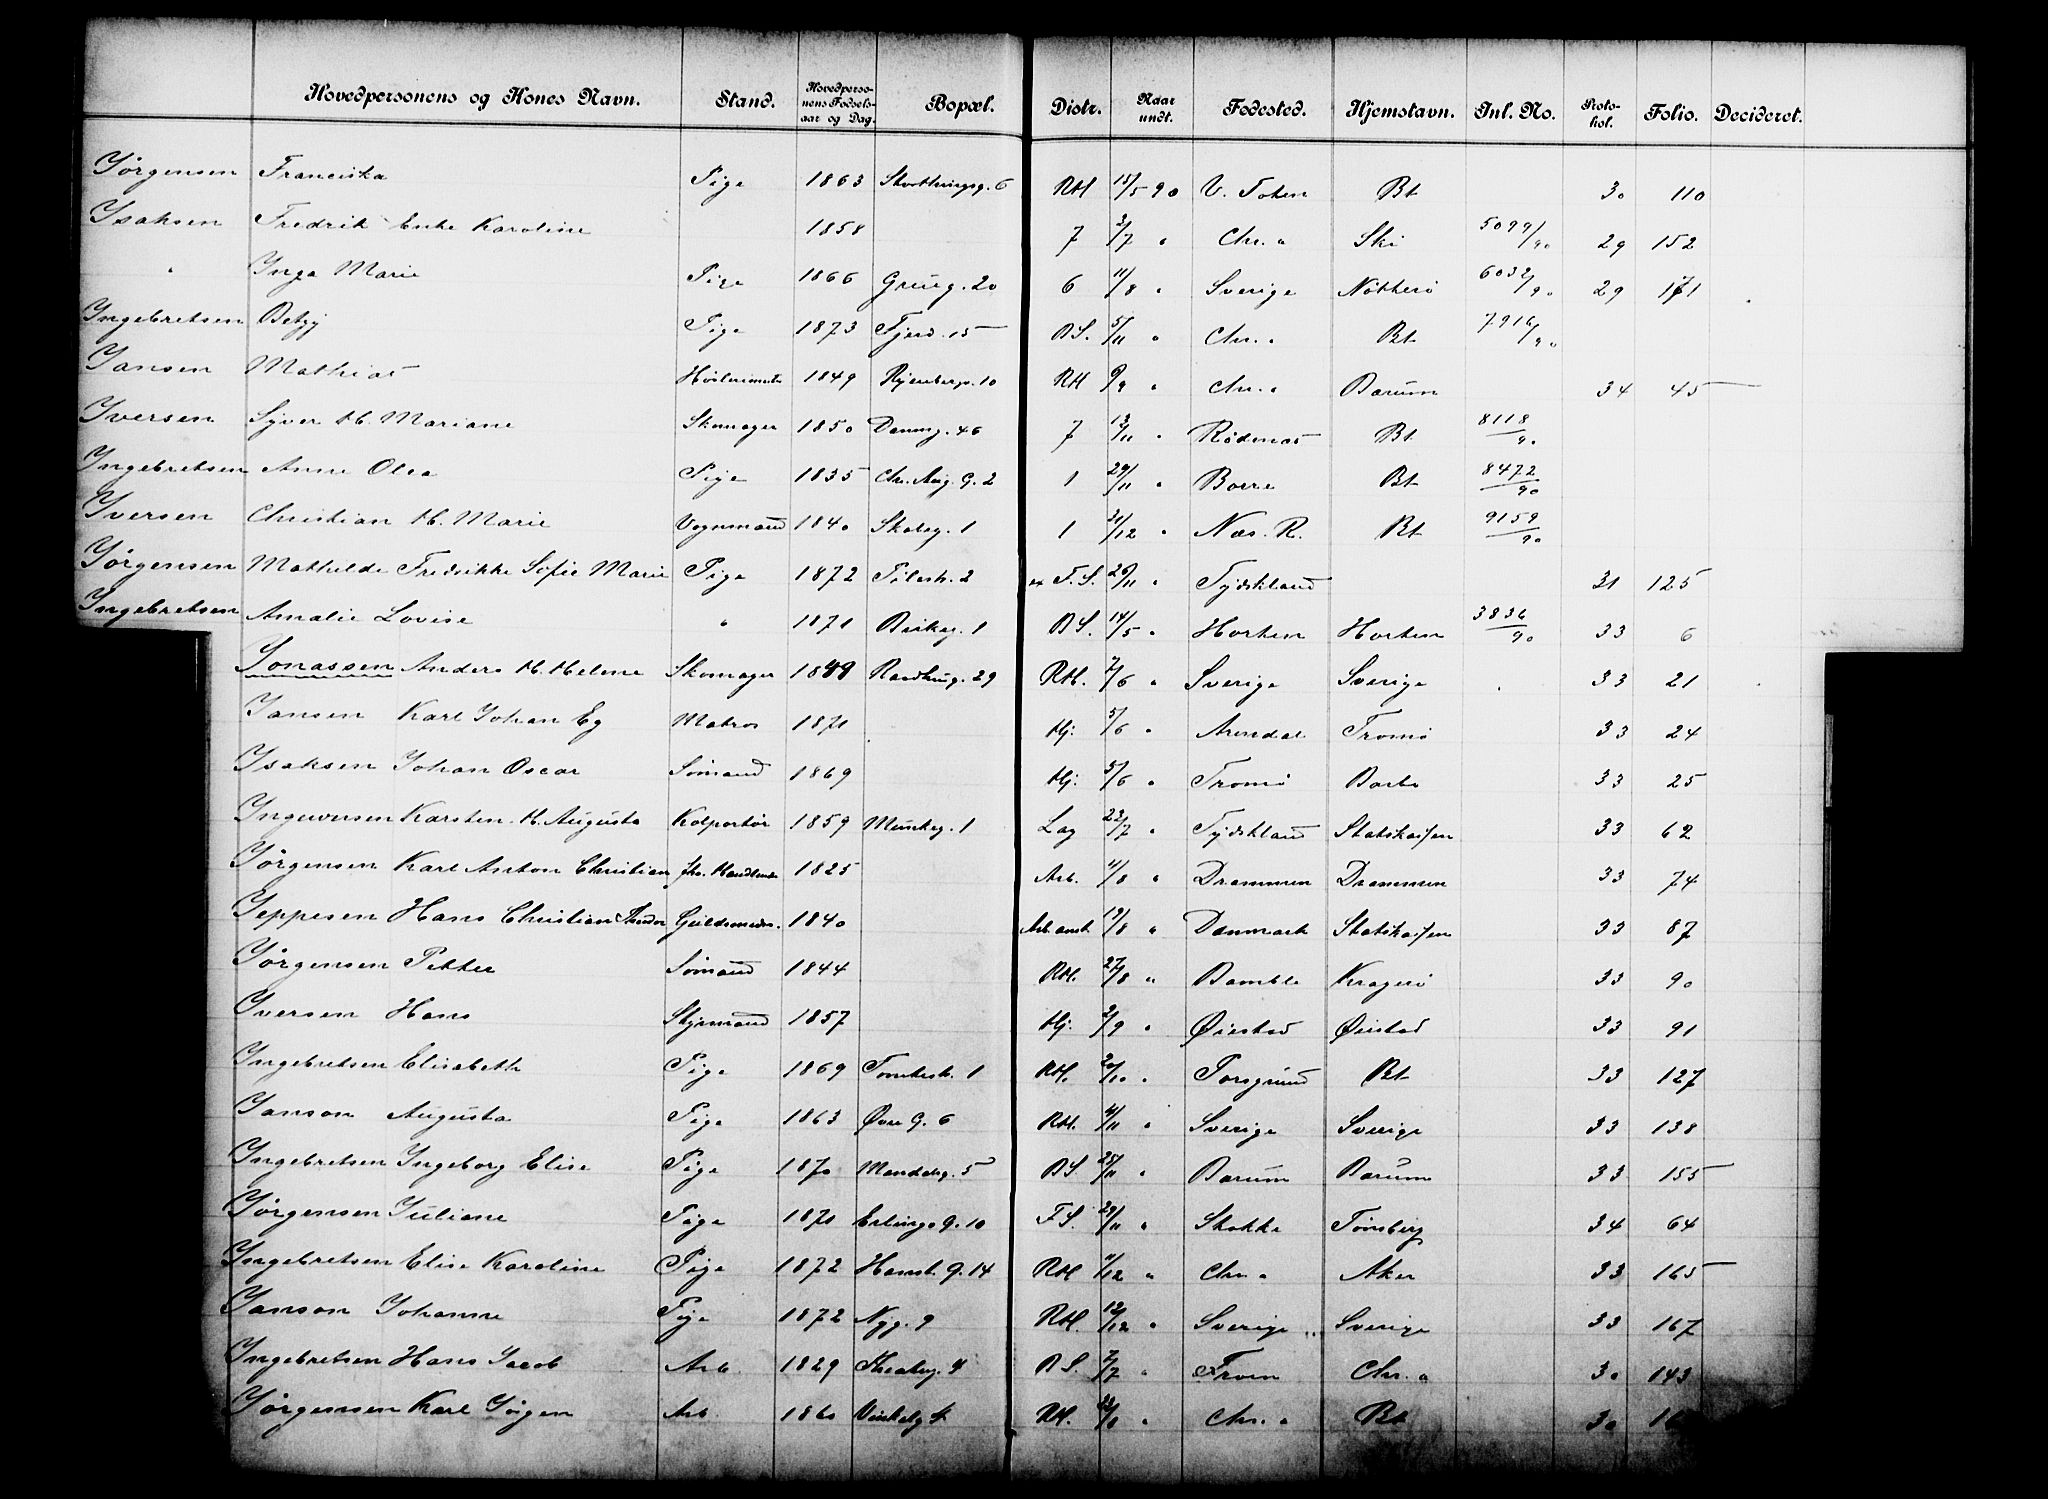 Hovedpersonens og Kones Navn. Stand. Hovedpersonens Fødselsaar og Dag. Bopæl. Distr. Naar undt. Fødested. Hjemstavn. Inl. No. Protokol. Folio. Decideret.
Jørgensen Franciska Pige 1863 6 RH 15/5 90 V. Toten Bt 30 110
Isaksen Fredrik Enke Karoline 1858 7 3/7 " Chr.a Ski 5099/90 29 152
" Inga Marie Pige 1866 Grüng. 20 6 11/8 " Sverige Nøtterø 6032/90 29 171
Ingebretsen Betzy Pige 1873 Fjerd. 15 BS. 5/11 " Chr.a Bt 7916/90
Jansen Mathias 1849 10 RH 9/9 " Chr.a Bærum 34 45
Iversen Syver H. Mariane Skomager 1850 Danmg. 46 7 12/11 " Rødenæs Bt 8118/90
Ingebretsen Anne Olea Pige 1835 Chr. Aug. G. 2 1 29/11 " Borre Bt 8472/90
Iversen Christian H. Marie Vognmand 1840 Skoleg. 1 1 31/12 " Næs. R. Bt 9159/90
Jørgensen Mathilde Fredrikke Sofie Marie Pige 1872 Pilestr. 2 F. S. 26/11 " Tydskland 31 125
Ingebretsen Amalie Lovise " 1871 1 BS. 14/5 " Horten Horten 3836/90 33 6
Jonassen Anders H. Helene Skomager 1849 29 RH. 7/6 " Sverige Sverige 33 21
Jansen Karl Johan Eg Matros 1871 Hj. 5/6 " Arendal Tromø 33 24
Isaksen Johan Oscar Sømand 1869 Hj. 5/6 " Tromø Barbo 33 25
Ingwersen Karsten H. Augusta Kolportør 1859 Munkeg. 1 Lag 23/7 " Tydskland Statskassen 33 62
Jørgensen Karl Anton Christian fhv. Handlende 1825 Arb. 11/8 " Drammen Drammen 33 74
Jeppesen Hans Christian Theodor Guldsmedsv. 1840 Arb anst 19/8 " Danmark Statskassen 33 87
Jørgensen Petter Sømand 1844 RH. 27/8 " Bamble Kragerø 33 90
Iversen Hans Styrmand 1857 Hj. 2/9 " Øiestad Øiestad 33 91
Ingebretsen Elisabeth Pige 1869 Tomtestr. 1 RH. 20/10 " Porsgrund Bt 33 127
Janson Augusta Pige 1863 Øvre G. 6 RH. 4/11 " Sverige Sverige 33 138
Ingebretsen Ingeborg Elise Pige 1870 Mandalsg. 5 BS. 25/11 " Bærum Bærum 33 155
Jørgensen Juliane Pige 1871 Erlings G. 10 F S. 29/11 " Stokke Tønsberg 34 64
Ingebretsen Elise Karoline Pige 1872 G. 14 RH 11/12 " Chr.a Aker 33 165
Janson Johanne Pige 1872 Nyg. 9 RH. 12/12 " Sverige Sverige 33 167
Ingebretsen Hans Jacob Arb. 1829 Theaterg. 4 BS. 7/7 " Froen Chr.a 30 143
Jørgensen Karl Jørgen Arb. 1860 Vinkelg RH. " Chr.a Bt 30